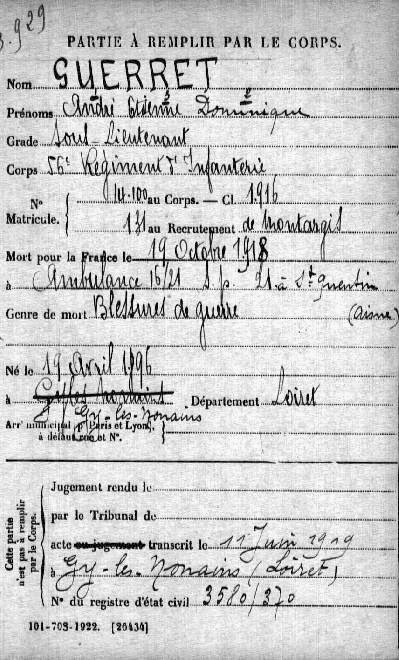 3.929
PARTIE À REMPLIR PAR LE CORPS.
Nom GUERRET
Prénoms André Etienne Dominique
Grade Sous-Lieutenant
Corps 56e Régiment d'Infanterie
N° 14.100 au Corps. — Cl. 1916
Matricule. 131 au Recrutement de Montargis
Mort pour la France le 19 Octobre 1918
à Ambulance 16/21 S.p. 21 à St Quentin
Genre de mort Blessures de guerre (Aisne)
Né le 19 Avril 1896
à Département Loiret
Gy-les-Nonains
Arrt municipal (pr Paris et Lyon),
à défaut rue et N°.
Cette partie n'est pas à remplir par le Corps.
Jugement rendu le
par le Tribunal de
acte ou jugement transcrit le 11 Juin 1919
à Gy-les-Nonains (Loiret)
N° du registre d'état civil 3580/370
101-708-1922. [26434]